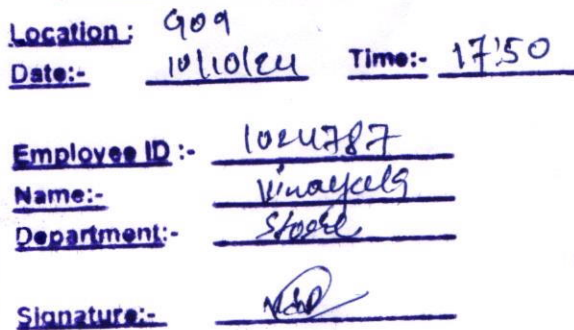 Location : Goa
Date:- 10/10/24 Time:- 17:50
Employee ID :- 1024787
Name:- Vinayak
Department:- Store
Signature:-